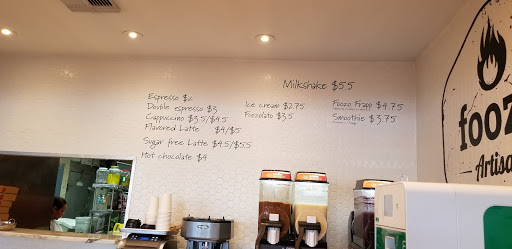 Milkshake $5.5
Espresso $2
Double espresso $3
Cappuccino $3.5/$4.5
Flavored Latte $4/$5
Sugar free Latte $4.5/$5.5
Hot chocolate $4
Ice cream $2.75
Foozolato $3.5
Foozo Frapp $4.75
Smoothie $3.75
fooz
Artisa